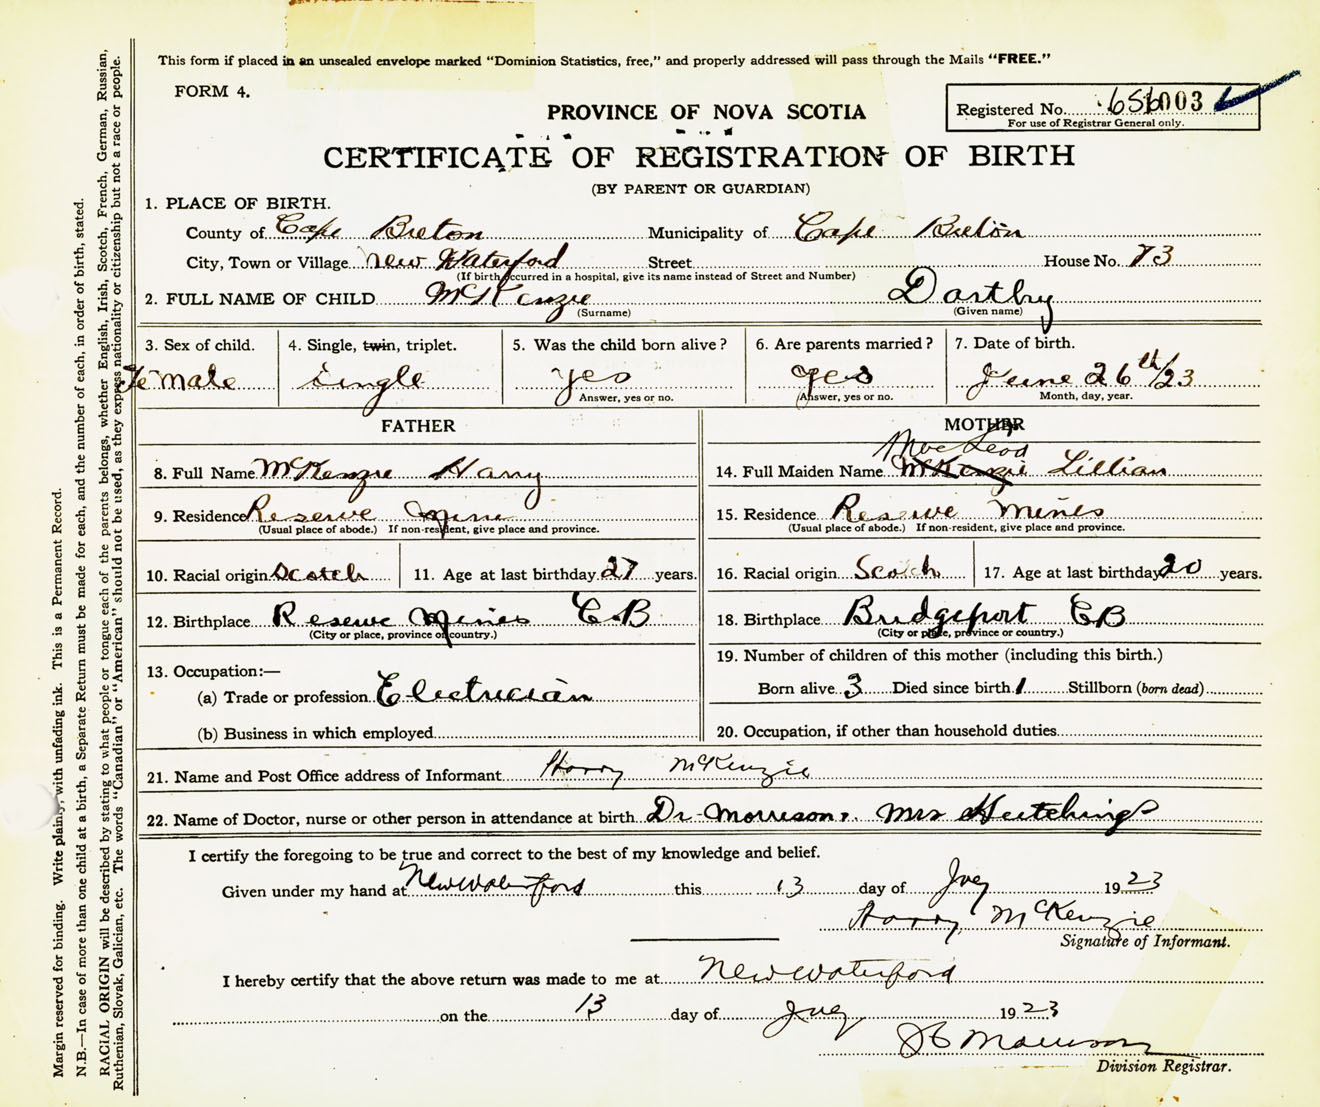 This form if placed in an unsealed envelope marked "Dominion Statistics, free," and properly addressed will pass through the Mails "FREE."
FORM 4.
Registered No. 003
For use of Registrar General only.
PROVINCE OF NOVA SCOTIA
CERTIFICATE OF REGISTRATION OF BIRTH
(BY PARENT OR GUARDIAN)
1. PLACE OF BIRTH.
County of Cape Breton Municipality of Cape Breton
City, Town or Village New Waterford Street House No. 73
(If birth occurred in a hospital, give its name instead of Street and Number)
2. FULL NAME OF CHILD McKenzie Dorthy
(Surname) (Given name)
3. Sex of child. 4. Single, twin, triplet. 5. Was the child born alive? 6. Are parents married? 7. Date of birth.
Female single yes yes June 26th/23
Answer, yes or no. (Answer, yes or no. Month, day, year.
FATHER MOTHER
Mac Leod
8. Full Name McKenzie Harry 14. Full Maiden Name McKenzie Lillian
9. Residence Reserve Mines 15. Residence Reserve Mines
(Usual place of abode.) If non-resident, give place and province. (Usual place of abode.) If non-resident, give place and province.
10. Racial origin Scotch 11. Age at last birthday 27 years. 16. Racial origin Scotch 17. Age at last birthday 20 years.
12. Birthplace Reserve Mines C.B 18. Birthplace Bridgeport CB
(City or place, province or country.) (City or place, province or country.)
13. Occupation:— 19. Number of children of this mother (including this birth.)
(a) Trade or profession Electrician Born alive 3 Died since birth 1 Stillborn (born dead)
(b) Business in which employed 20. Occupation, if other than household duties
21. Name and Post Office address of Informant Harry McKenzie
22. Name of Doctor, nurse or other person in attendance at birth Dr Morrison, Mrs Hutchings
I certify the foregoing to be true and correct to the best of my knowledge and belief.
Given under my hand at New Waterford this 13 day of 1923
Harry McKenzie
Signature of Informant.
I hereby certify that the above return was made to me at New Waterford
on the 13 day of 1923
Morrison
Division Registrar.
Margin reserved for binding. Write plainly, with unfading ink. This is a Permanent Record.
N.B.—In case of more than one child at a birth, a Separate Return must be made for each, and the number of each, in order of birth, stated.
RACIAL ORIGIN will be described by stating to what people or tongue each of the parents belongs, whether English, Irish, Scotch, French, German, Russian,
Ruthenian, Slovak, Galician, etc. The words "Canadian" or "American" should not be used, as they express nationality or citizenship but not a race or people.